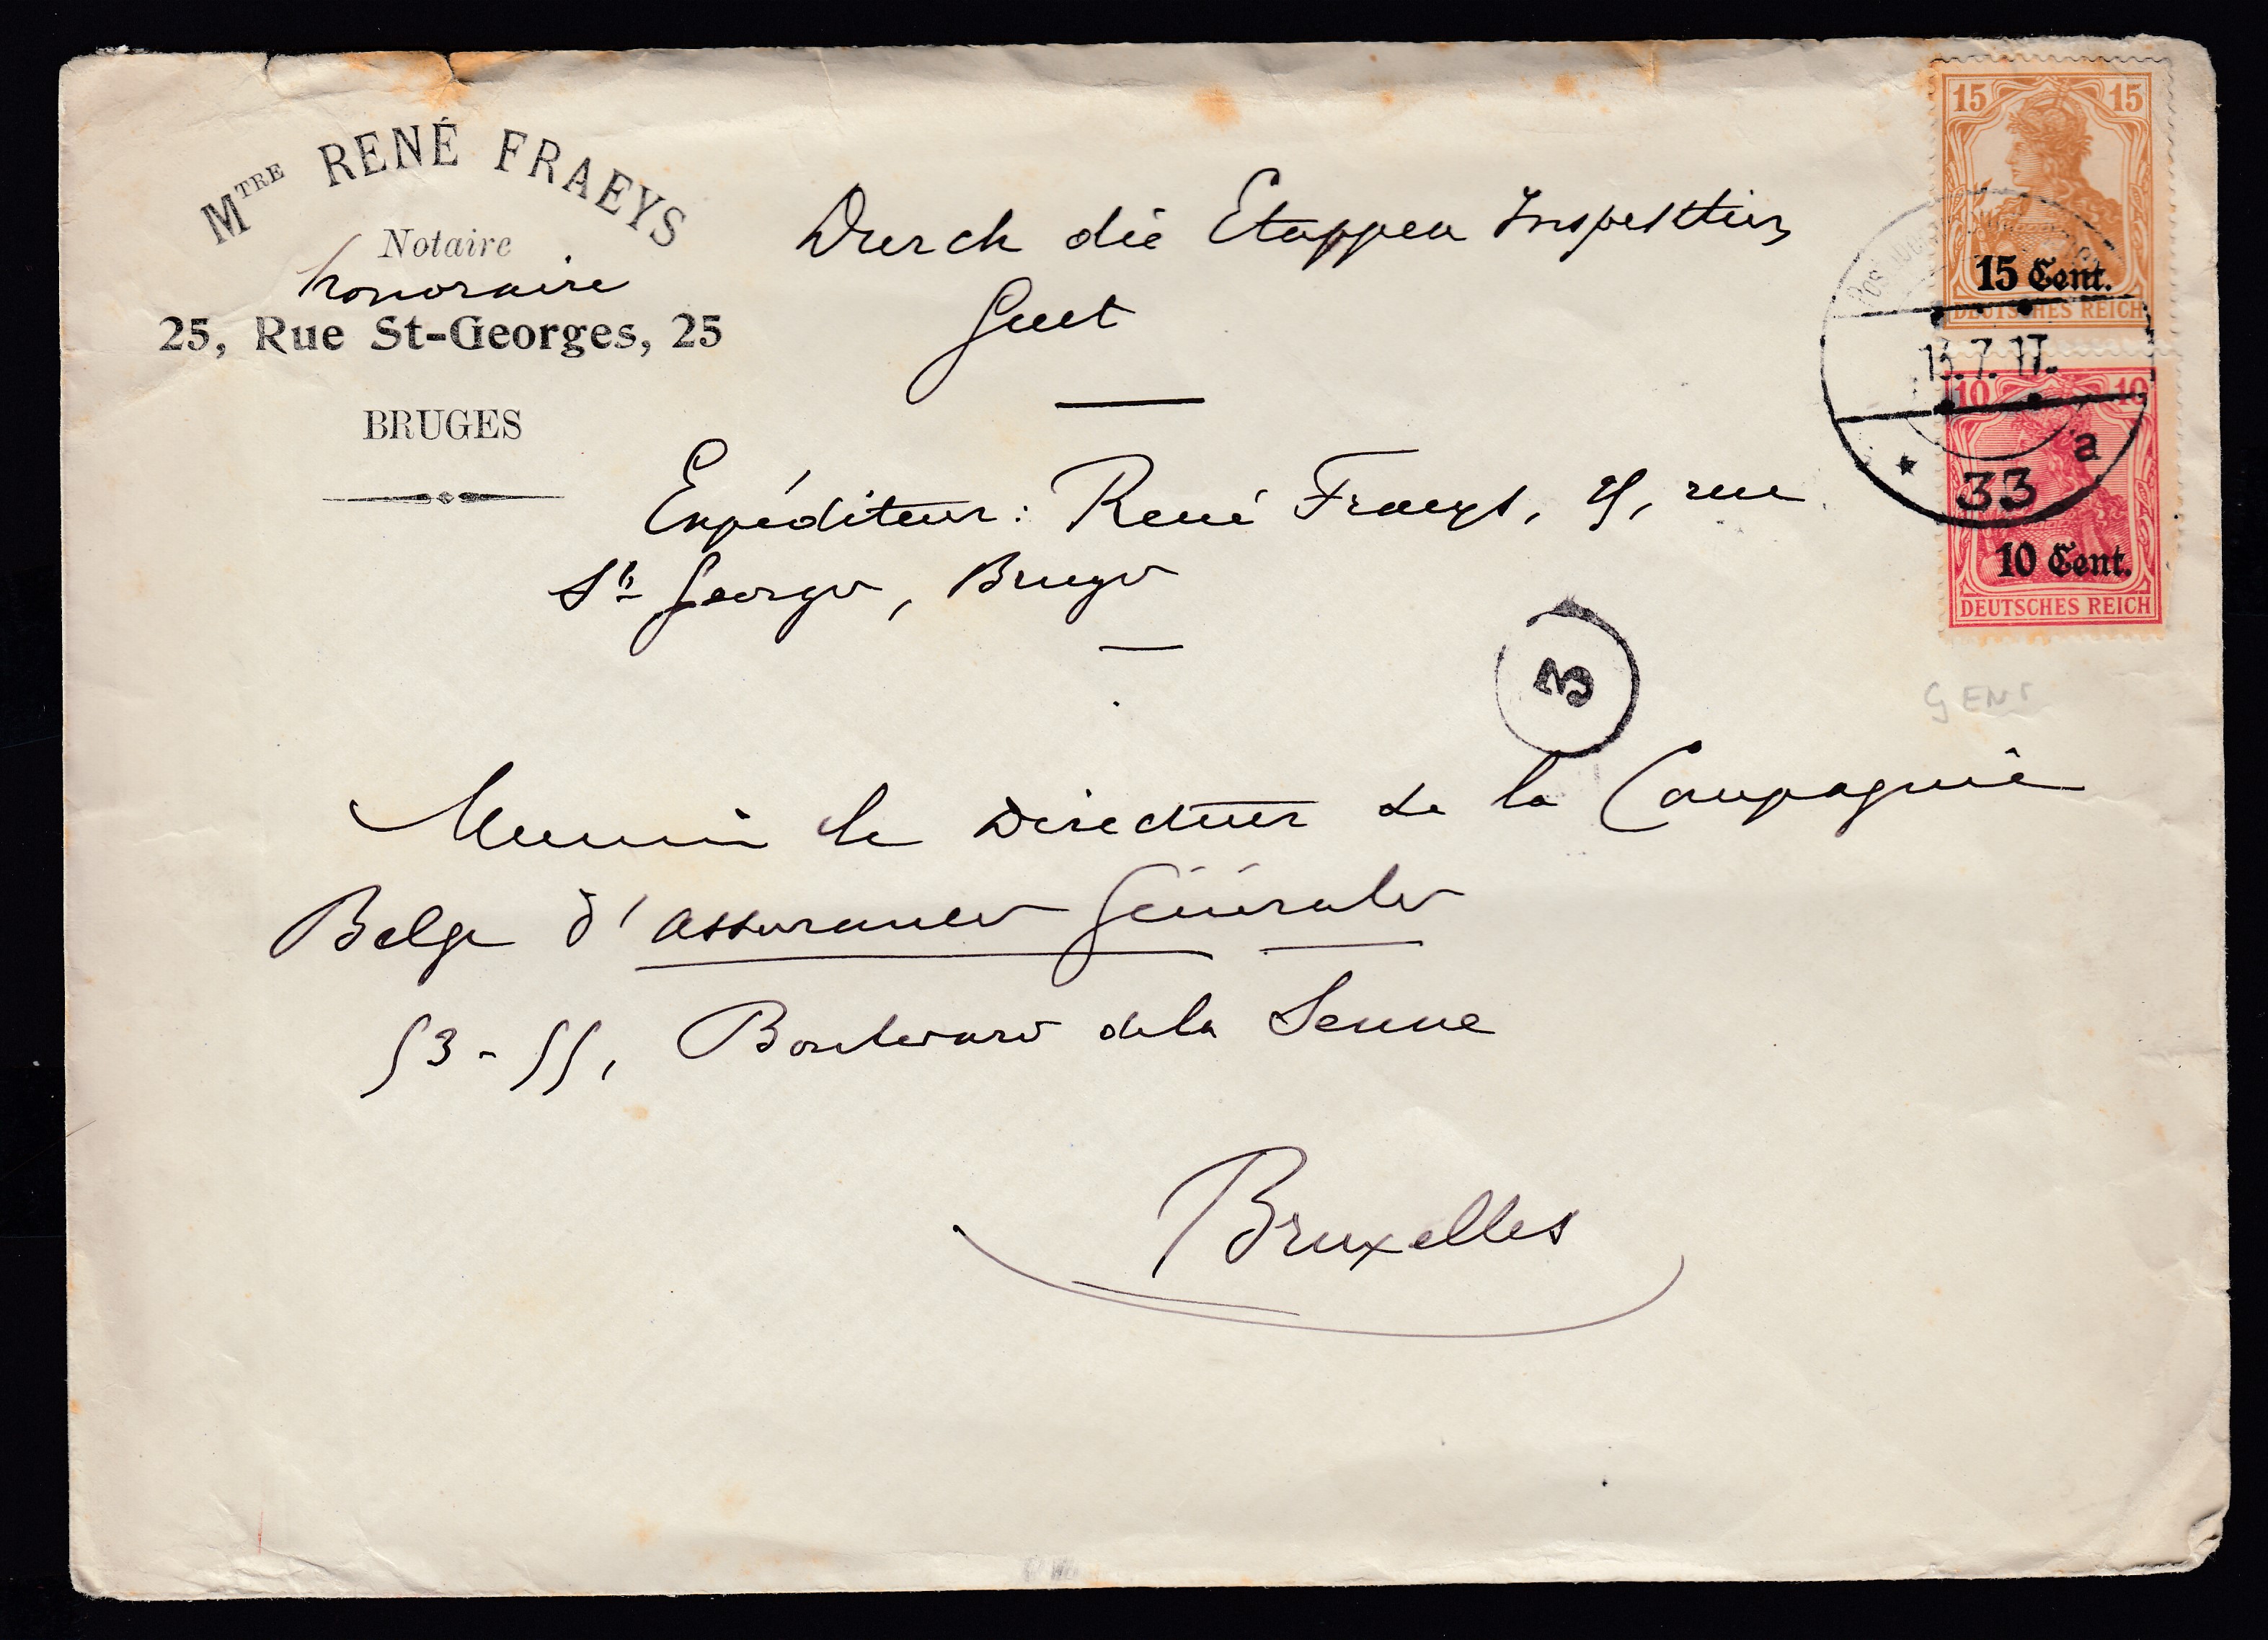 Mtre RENÉ FRAEYS
Notaire
honoraire
25, Rue St-Georges, 25
BRUGES
Durch die Etappen Inspektion
Gent
Expéditeur: René Fraeys, 25, rue
St Georges, Bruges
Monsieur le Directeur de la Compagnie
Belge d'assurances Générales
53-55, Boulevard de la Senne
Bruxelles
15 15
15 Cent.
DEUTSCHES REICH
13.7.17.
10 10
a
* 33
10 Cent.
DEUTSCHES REICH
3
GENT